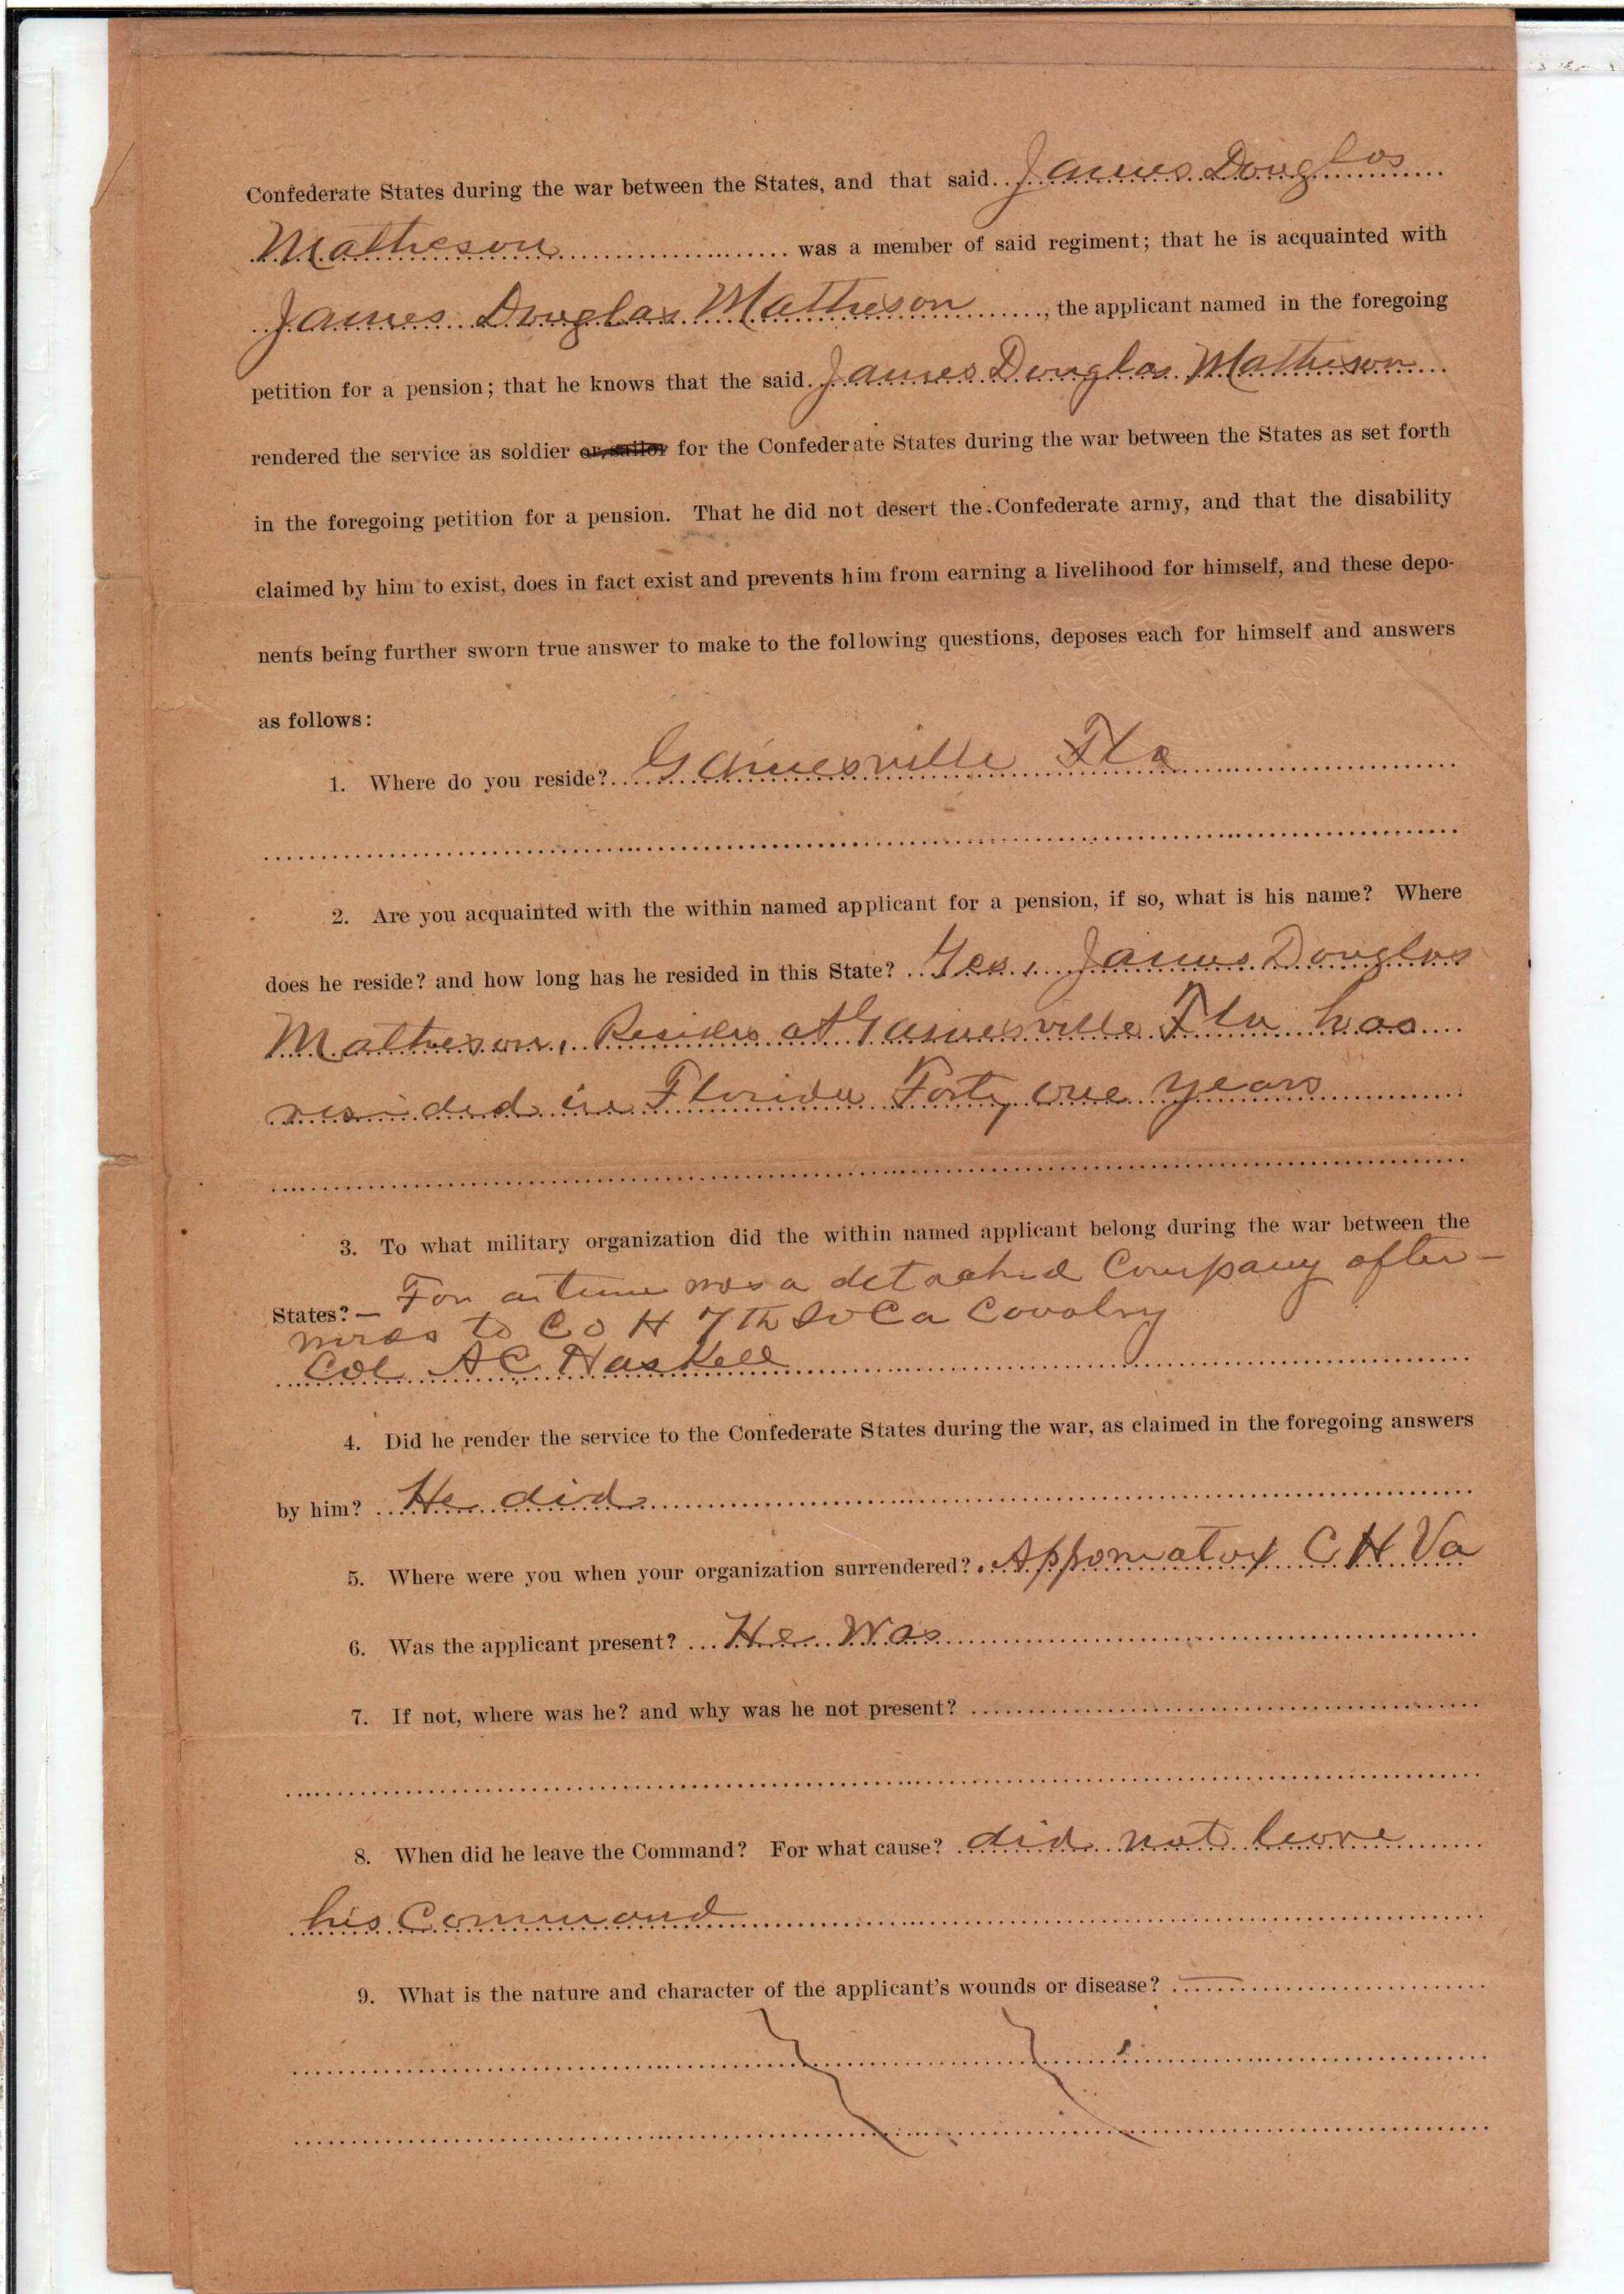 Confederate States during the war between the States, and that said James Douglas
Matheson was a member of said regiment; that he is acquainted with
James Douglas Matheson, the applicant named in the foregoing
petition for a pension; that he knows that the said James Douglas Matheson
rendered the service as soldier or sailor for the Confederate States during the war between the States as set forth
in the foregoing petition for a pension. That he did not desert the Confederate army, and that the disability
claimed by him to exist, does in fact exist and prevents him from earning a livelihood for himself, and these depo-
nents being further sworn true answer to make to the following questions, deposes each for himself and answers
as follows:
1. Where do you reside? Gainesville Fla
2. Are you acquainted with the within named applicant for a pension, if so, what is his name? Where
does he reside? and how long has he resided in this State? Yes, James Douglas
Matheson, Resides at Gainesville Fla has
resided in Florida Forty one years
3. To what military organization did the within named applicant belong during the war between the
States? — For a time was a detached Company after-
wards to Co H 7th So Ca Cavalry
Col A C Haskell
4. Did he render the service to the Confederate States during the war, as claimed in the foregoing answers
by him? He did
5. Where were you when your organization surrendered? Appomatox C H Va
6. Was the applicant present? He Was
7. If not, where was he? and why was he not present?
8. When did he leave the Command? For what cause? did not leave
his Command
9. What is the nature and character of the applicant's wounds or disease? —